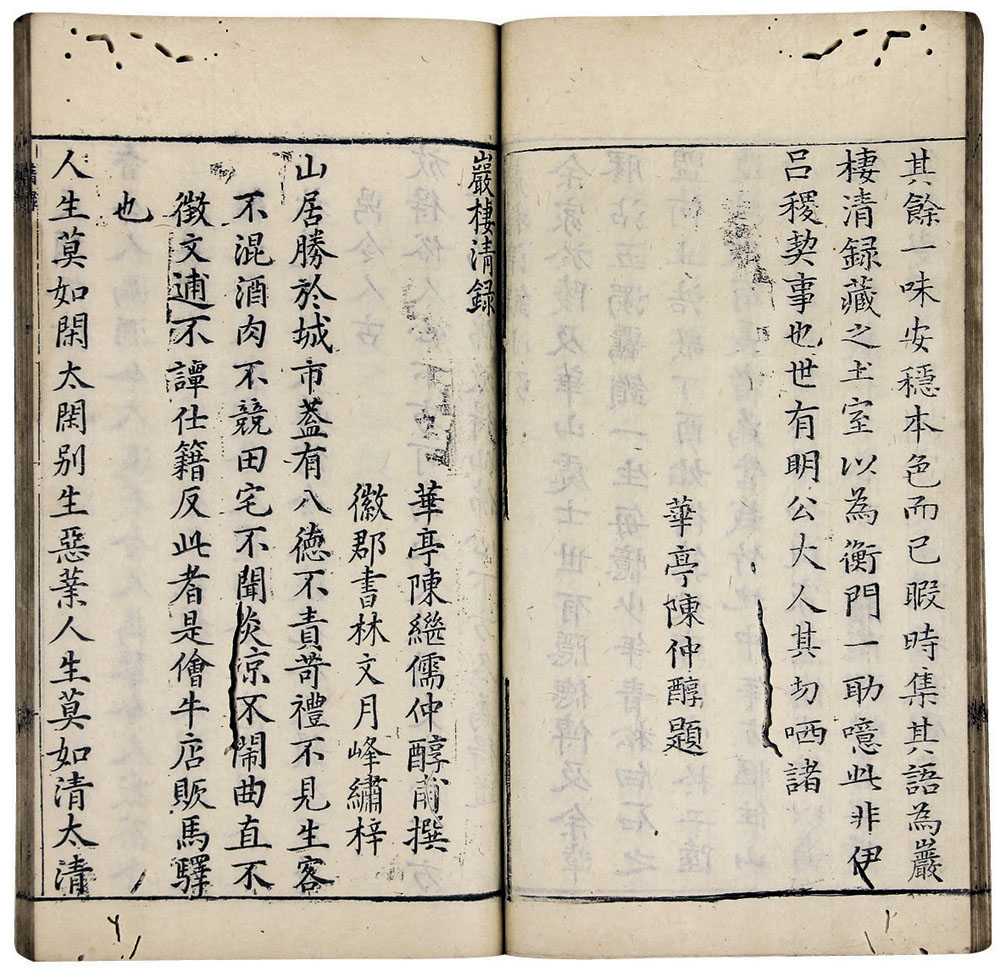 其餘一味安穩本色而已暇時集其語為巖
棲清録藏之土室以為衡門一助噫此非伊
呂稷契事也世有明公大人其切哂諸
華亭陳仲醇題
巖棲清録
華亭陳繼儒仲醇甫撰
徽郡書林文月峰繡梓
山居勝於城市葢有八德不責苛禮不見生客
不混酒肉不競田宅不聞炎凉不鬧曲直不
徵文逋不譚仕籍反此者是儈牛店販馬驛
也
人生莫如閑太閑別生惡業人生莫如清太清